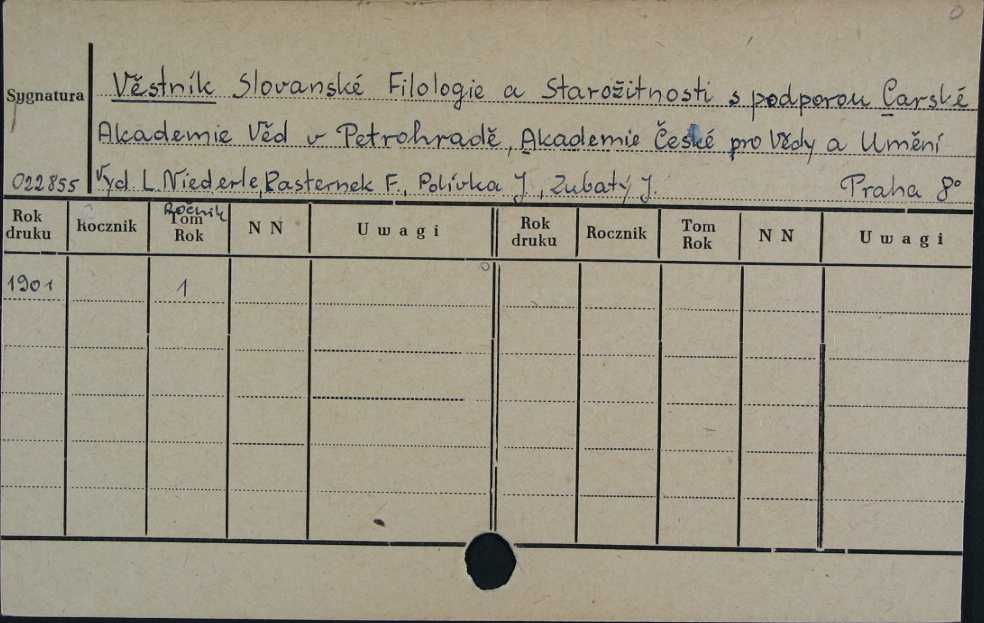 Sygnatura
Věstník Slovanské Filologie a Starožitnosti s podporou Carské
Akademie Věd v Petrohradě, Akademie České pro Vědy a Umění
022855
Vyd L. Niederle, Pasternek F., Polívka J., Zubatý J. Praha 8°
Rok druku
Rocznik
Ročnik
Tom Rok
N N
Uwagi
Rok druku
Rocznik
Tom Rok
N N
Uwagi
1901 1